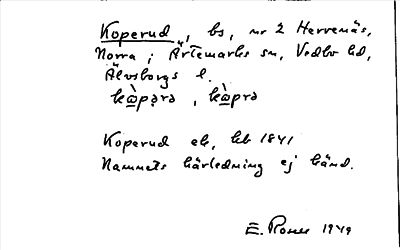 Koperud, bs, nr 2 Hervenäs,
Norra i Ärtemarks sn, Vedbo hd,
Älvsborgs l.
kɷ̀pərə, kɷ̀prə
Koperud ek, hb 1841
Namnets härledning ej känd.
E. 1949